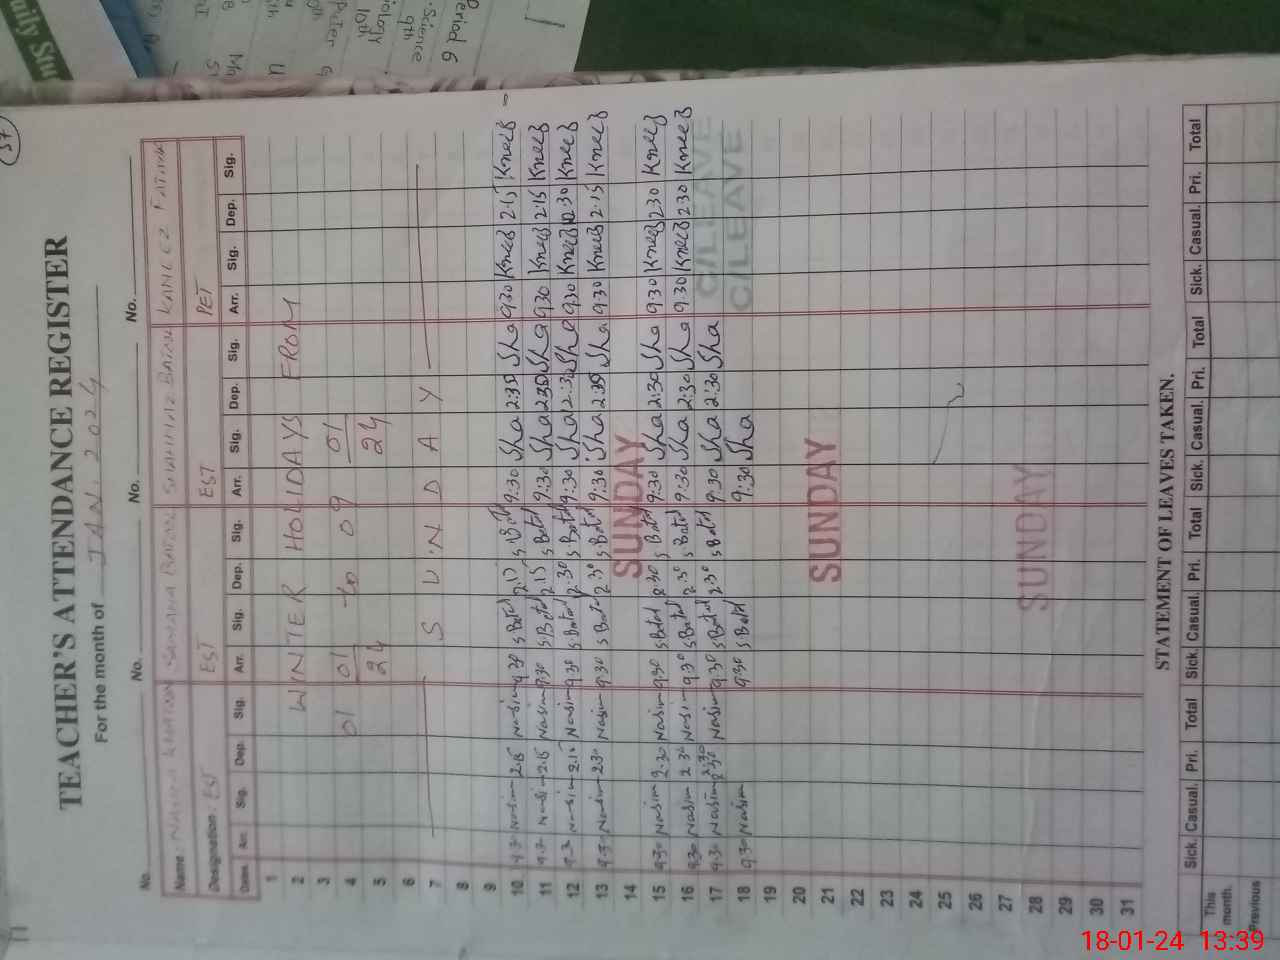 37
TEACHER'S ATTENDANCE REGISTER
For the month of JAN. 2024
No. No. No. No.
Name KHATOON BATOOL SHAHNAZ BATOOL KANEEZ FATIMA
Designation EST EST EST PET
Dates Arr. Sig. Dep. Sig. Arr. Sig. Dep. Sig. Arr. Sig. Dep. Sig. Arr. Sig. Dep. Sig.
1
2 WINTER HOLIDAYS FROM
3
4 01 01 to 09 01
5 24 24
6
7 S U N D A Y
8
9
10 9.30 Nasim 2.15 Nasim 9.30 S Batol 2.15 S Batol 9:30 Sha 2:30 Sha 9.30 Kneez 2.15 Kneez
11 9.30 Nasim 2.15 Nasim 9.30 S Batol 2.15 S Batol 9:30 Sha 2:30 Sha 9.30 Kneez 2.15 Kneez
12 9.30 Nasim 2.15 Nasim 9.30 S Batol 2.30 S Batol 9:30 Sha 2:30 Sha 9.30 Kneez 2.30 Kneez
13 9.30 Nasim 2.30 Nasim 9.30 S Batol 2.30 S Batol 9:30 Sha 2:30 Sha 9.30 Kneez 2.15 Kneez
14 SUNDAY
15 9.30 Nasim 2.30 Nasim 9.30 S Batol 2.30 S Batol 9:30 Sha 2:30 Sha 9.30 Kneez 2.30 Kneez
16 9.30 Nasim 2.30 Nasim 9.30 S Batol 2.30 S Batol 9:30 Sha 2:30 Sha 9.30 Kneez 2.30 Kneez
17 9.30 Nasim 2.30 Nasim 9.30 S Batol 2.30 S Batol 9:30 Sha 2:30 Sha C/LEAVE
18 9.30 Nasim 9.30 S Batol 9:30 Sha C/LEAVE
19
20
21 SUNDAY
22
23
24
25
26
27
28 SUNDAY
29
30
31
STATEMENT OF LEAVES TAKEN.
Sick. Casual. Pri. Total Sick. Casual. Pri. Total Sick. Casual. Pri. Total Sick. Casual. Pri. Total
This month.
Previous
Period 6
Science
9th
iology
10th
18-01-24 13:39